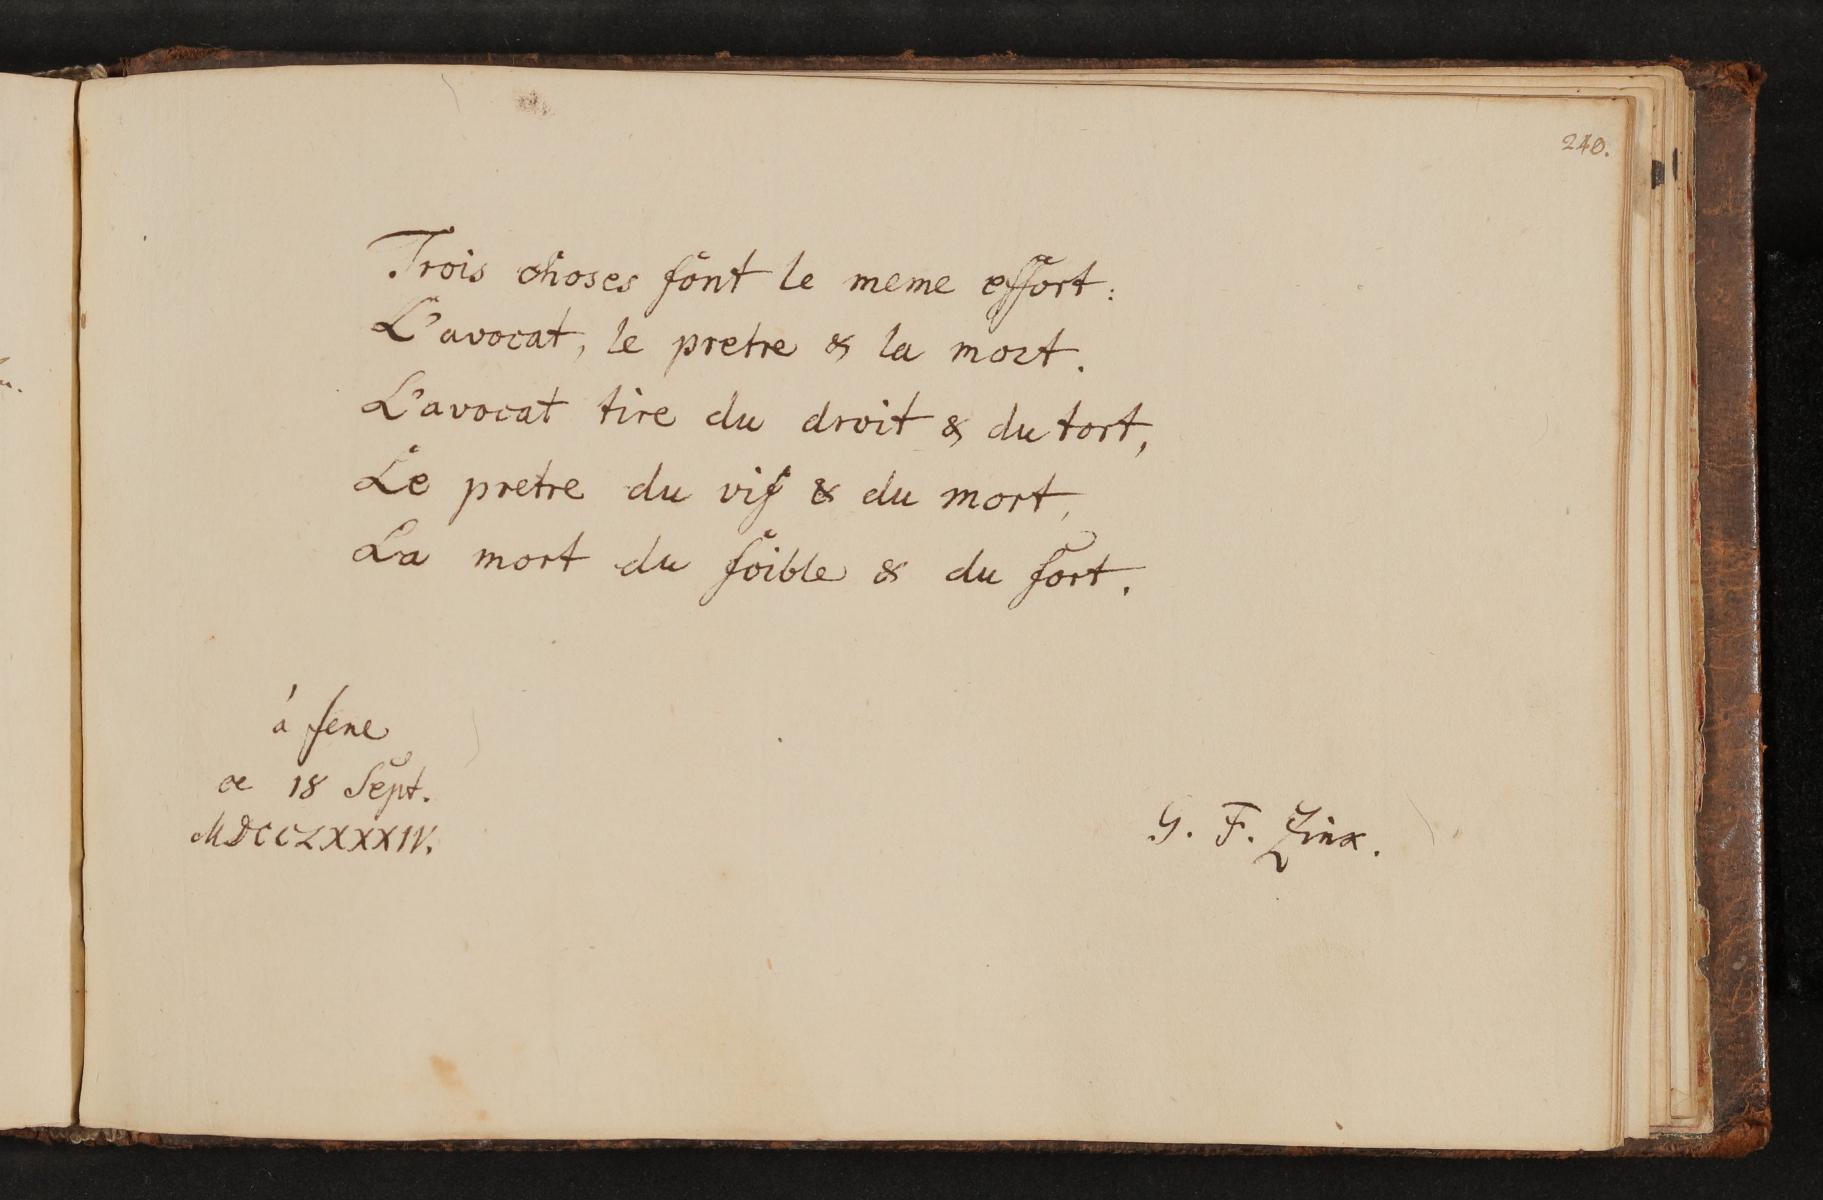 240.
Trois choses font le meme effort:
L'avocat, le pretre & la mort.
L'avocat tire du droit & du tort,
Le pretre du vif & du mort,
La mort du foible & du fort.
à Jene
ce 18 Sept.
MDCCLXXXIV.
G. F. Zinx.